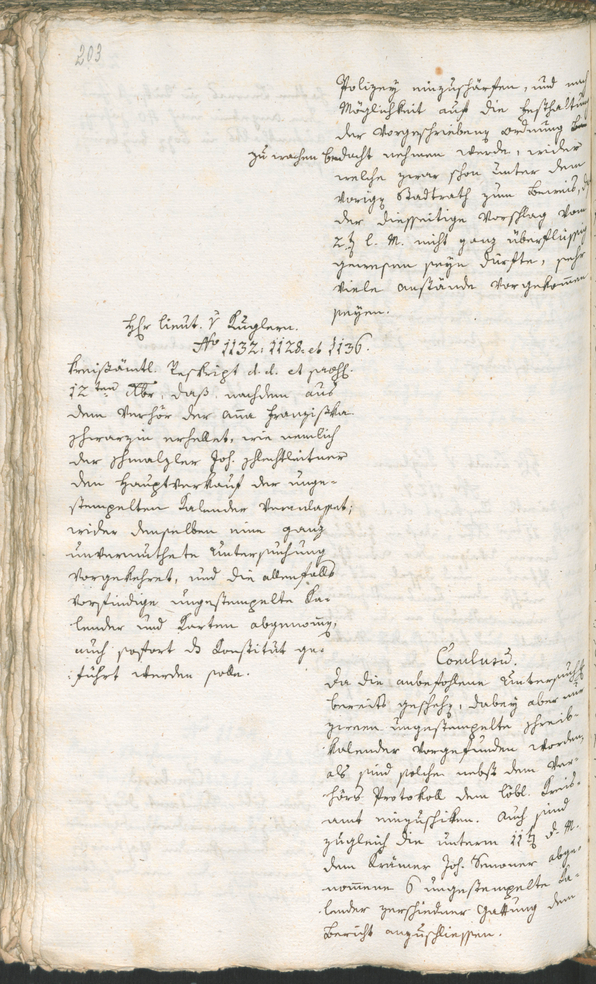 203
Polizey einzuschärfen, und nach
Möglichkeit auf die Festhaltung
der Vorgeschriebenen ordnung
zu wachen bedacht nehmen werde, wider
welche zwar schon unter dem
vorigen Stadtrath zum Beweis, daß
der diesseitige Vorschlag vom
2ten l. M. nicht ganz überflüssig
gewesen seyn dürfte, sehr
viele anstände vorgekommen
seyen.
Hr Lieut. v Kuglern.
No 1132, 1128 et 1136.
Kreißämtl. Reskript d. d. et
12ten Xbr, daß, nachdem aus
dem Verhör der Ana Franziska
Schwarzin erhellet, wie nemlich
der Schmalzler Joh. Schlechtleitner
den Hauptverkauf der unge-
stempelten Kalender veranlasset;
wider denselben eine ganz
unvermuthete Untersuchung
vorgekehret, und die allenfalls
vorfindige ungestempelte Ka-
lender und Karten abgenommen,
auch sofort das Konstitut ge-
führt werden solle.
Conclusu.
Da die anbefohlene Untersuchung
bereits geschehen, dabey aber nur
zween ungestempelte Schreib-
kalender vorgefunden worden,
als sind solche nebst dem Ver-
hörs Protokoll dem löbl. Kreis-
amt einzuschiken. Auch sind
zugleich die unterm 11ten d. M.
dem Krämer Joh. Simoner abge-
nommene 6 ungestempelte Ka-
lender verschiedner Gattung dem
Bericht anzuschliessen.